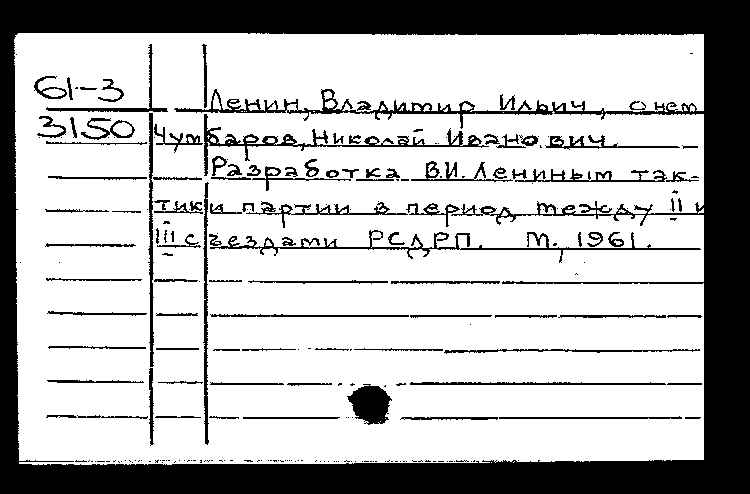 61-3
Ленин, Владимир Ильич, о нем
3150 Чумбаров, Николай Иванович.
Разработка В.И. Лениным так-
тики партии в период между II и
III съездами РСДРП. М., 1961.